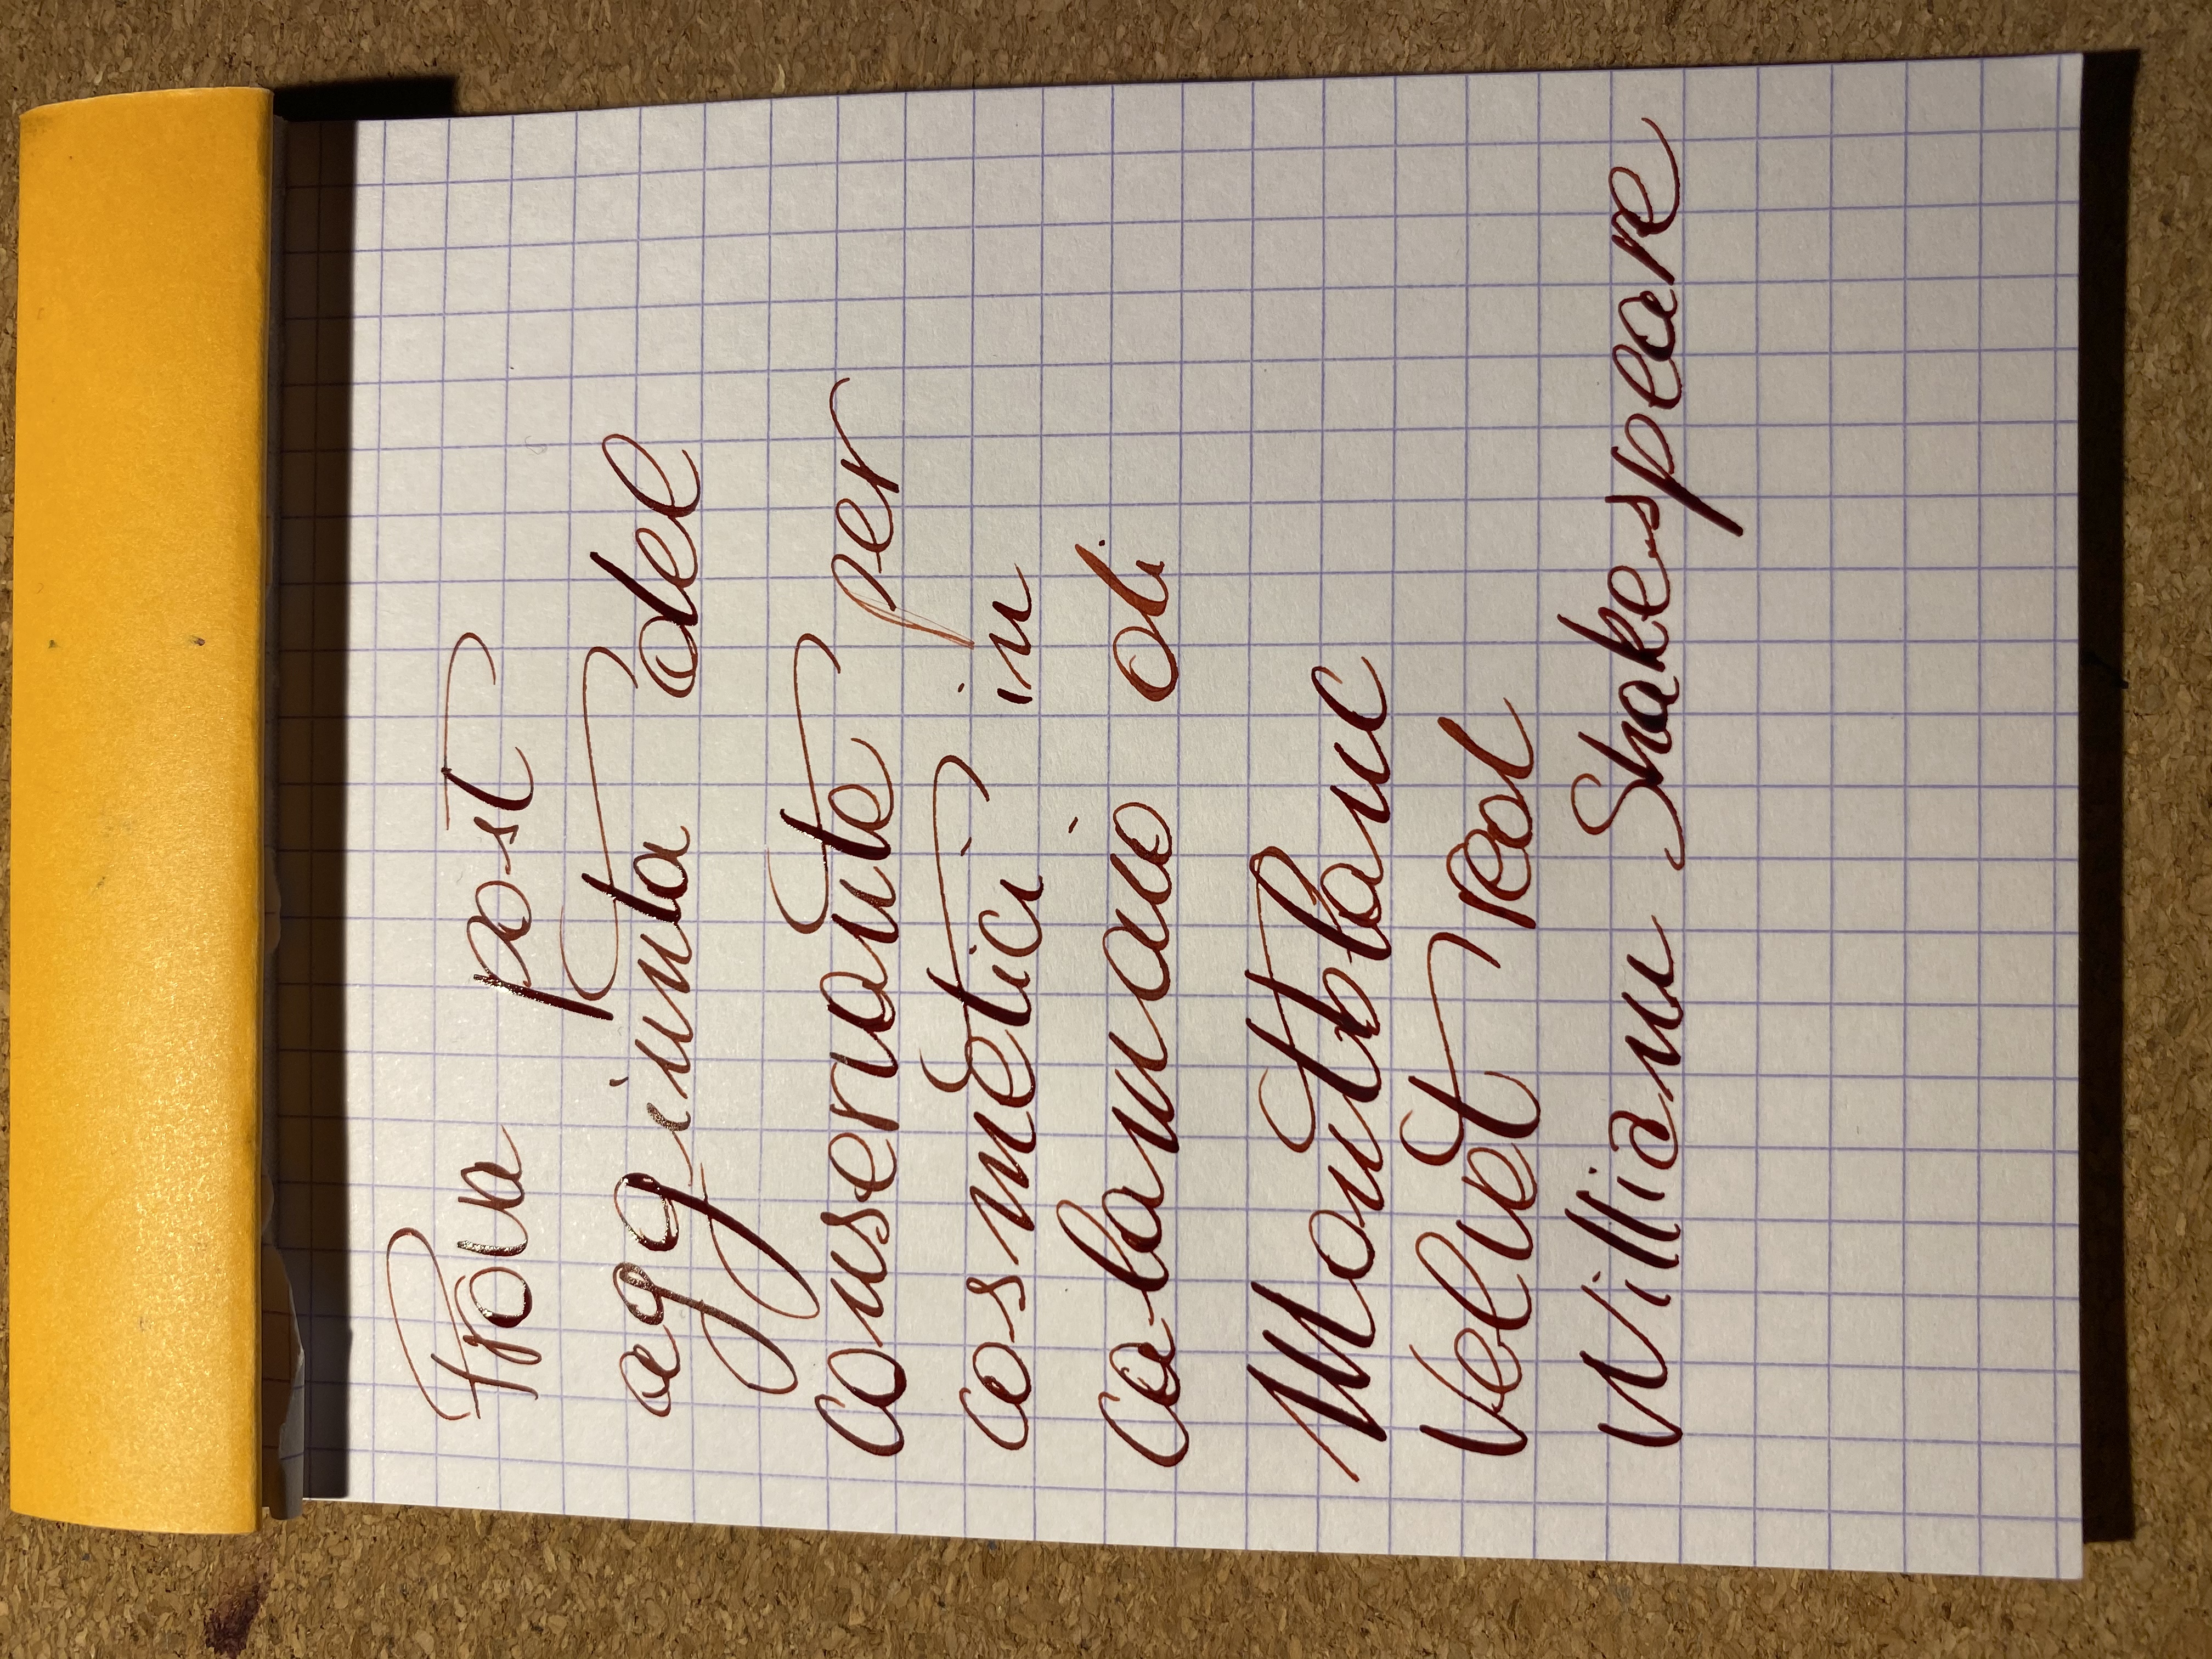 Prova post
aggiunta del
conservante per
cosmetici in
calamaio di
Montblanc
Velvet red
William Shakespeare